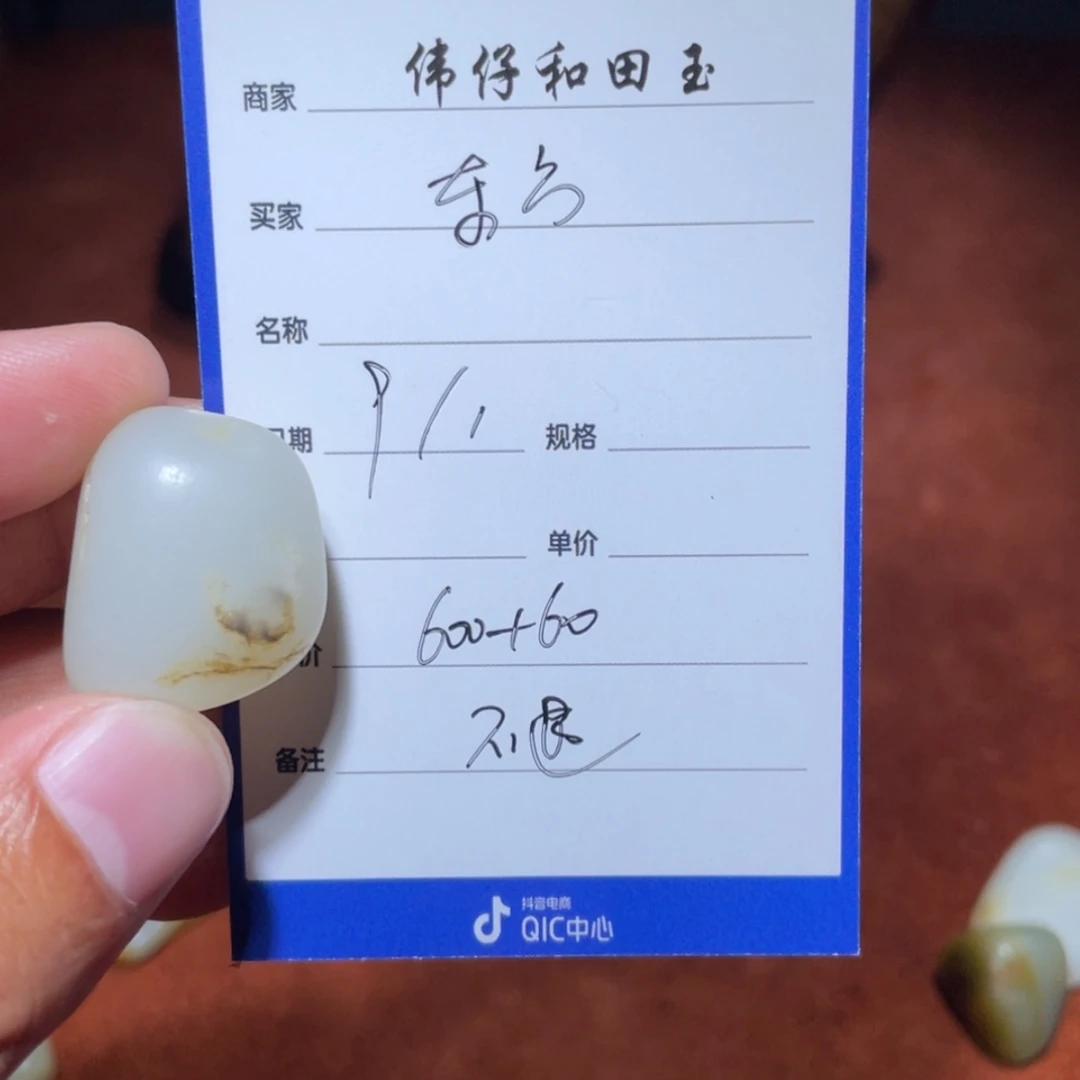 商家 伟仔和田玉
买家
名称
日期 9/1 规格
单价
价 600+60
备注 不退
抖音电商
QIC中心